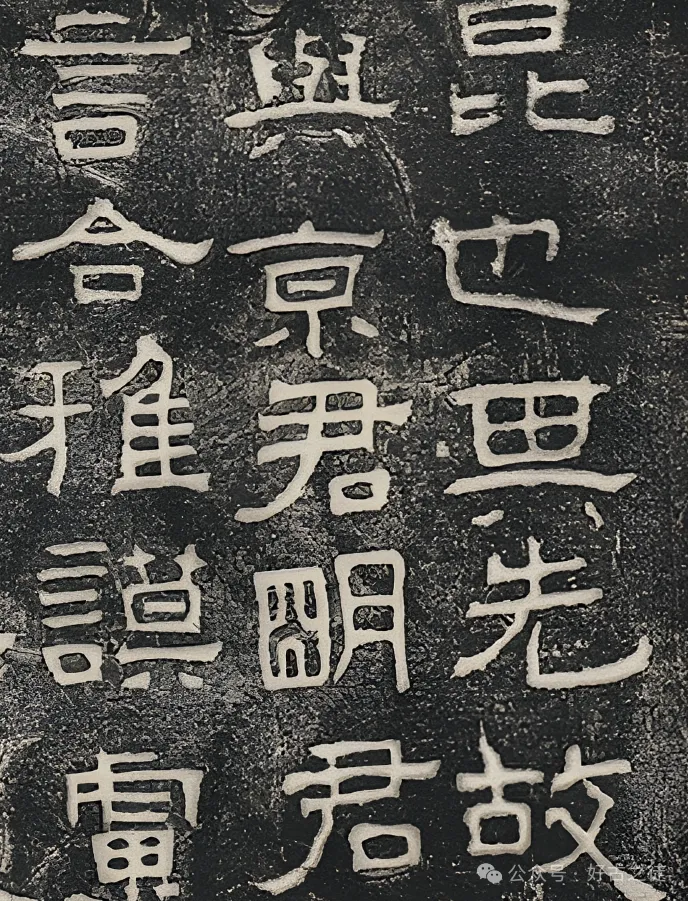 昆也其先故
與京君明君
言合雅謨慮
公众号：好古之徒